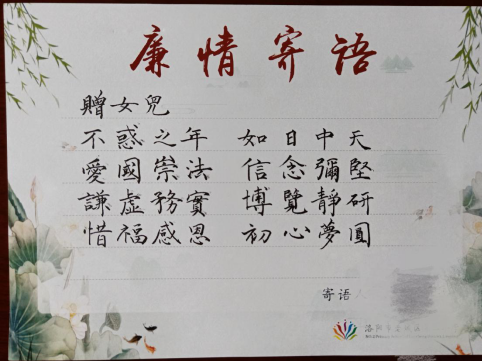 廉情寄语
贈女兒
不惑之年 如日中天
愛國崇法 信念彌堅
謙虛務實 博覽靜研
惜福感恩 初心夢圓
寄语人